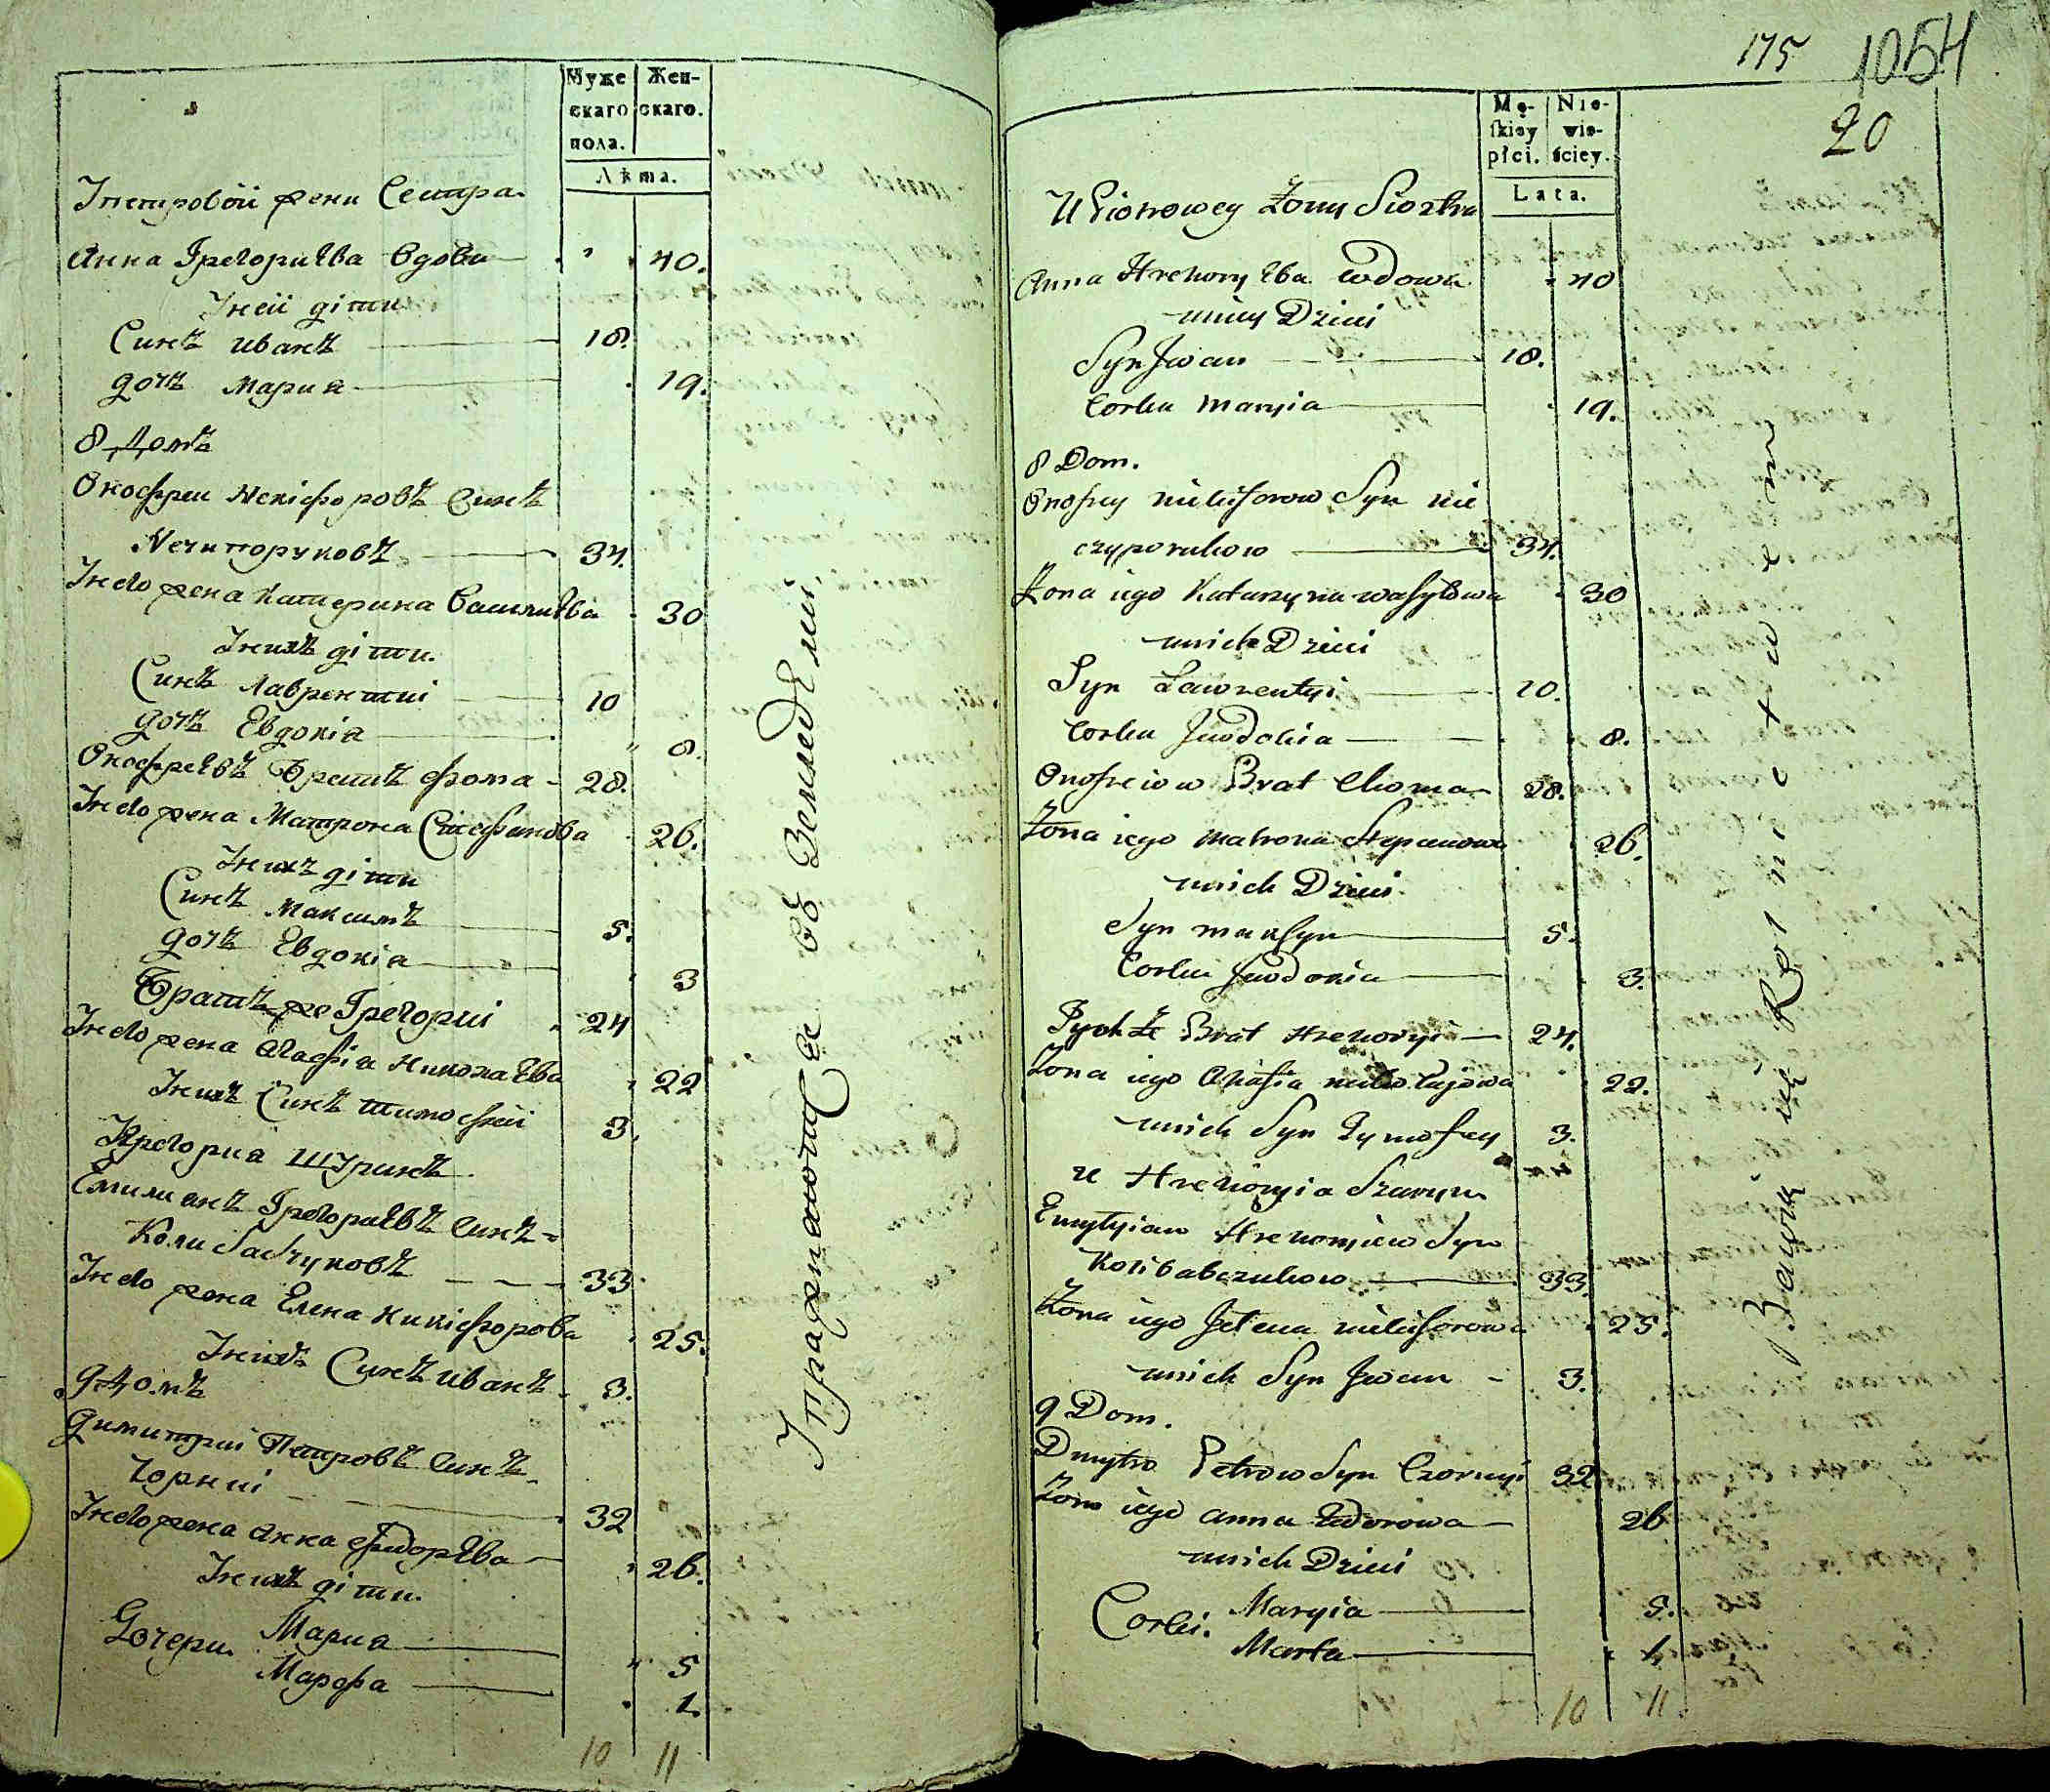 Муже
скаго
пола.
Жен-
скаго.
Лѣта.
Їпетровой жени Сестра
Анна Григориѣва вдова 40.
Їнеи дѣти
Синъ иванъ 18.
дочъ Мария 19.
8 Домъ
Онофреи Некіфоровъ Синъ
Нечипоруковъ 34.
Їнего жена Катерина Василиѣва 30
Їнихъ діти.
Синъ Лаврентиі 10
дочъ Евдокіа 8.
Онофреѣвъ Братъ фома 28.
Їнего жена Матрона Стефанова 26.
Їнихъ діти
Синъ Максимъ 5.
дочъ Евдокіа 3
Братъ же Григориі 24
Їнего жена Агафіа Николаѣва 22
Їнихъ Синъ Тимофеи 3.
Григория Шуринъ
Емилианъ Григориѣвъ Синъ
Колибабчуковъ 33
Їнего жена Елена Никіфорова 25.
Їнихъ Синъ иванъ 3.
9 Домъ
Димитриі Петровъ Синъ
Чорниі 32
Їнего жена Анна Федорѣва 26.
Їнихъ діти.
Дочери Мария 5
Марфа 1.
10 11
Їпражнаютса въ Земледѣлиі
175 1054
20
Mę-
skiey
płci.
Nie-
wie-
ściey.
Lata.
U Piotrowey Żony Siostra
Anna Hrehoryѣwa wdowa 40
u niey Dzieci
Syn Jwan 18.
Corka Maryia 19.
8 Dom.
Onofrey nikiforow Syn nie
czyporukow 34.
Żona iego Katarzyna wasylowa 30
u nich Dzieci
Syn Lawrentyi 10.
Corka Jewdokia 8.
Onofreiow Brat Choma 28.
Żona iego Matrona Stepanowa 26.
u nich Dzieci
Syn maksym 5.
Corka Jewdokia 3.
Tychże Brat Hrehoryi 24.
Żona iego Ahafia mikołajowa 22.
u nich Syn Tymofey 3.
u Hrehoryia Szwagier
Emylyian Hrehoryiew Syn
Kolibabczukow 33.
Żona iego Jelena nikiforowa 25.
u nich Syn Jwan 3.
9 Dom.
Dmytro Petrow Syn Czornyi 32
Żona iego Anna Fedorowa 26
u nich Dzieci
Corki. Maryia 5.
Marta 1.
10 11.
Bawią się Rolnictwem